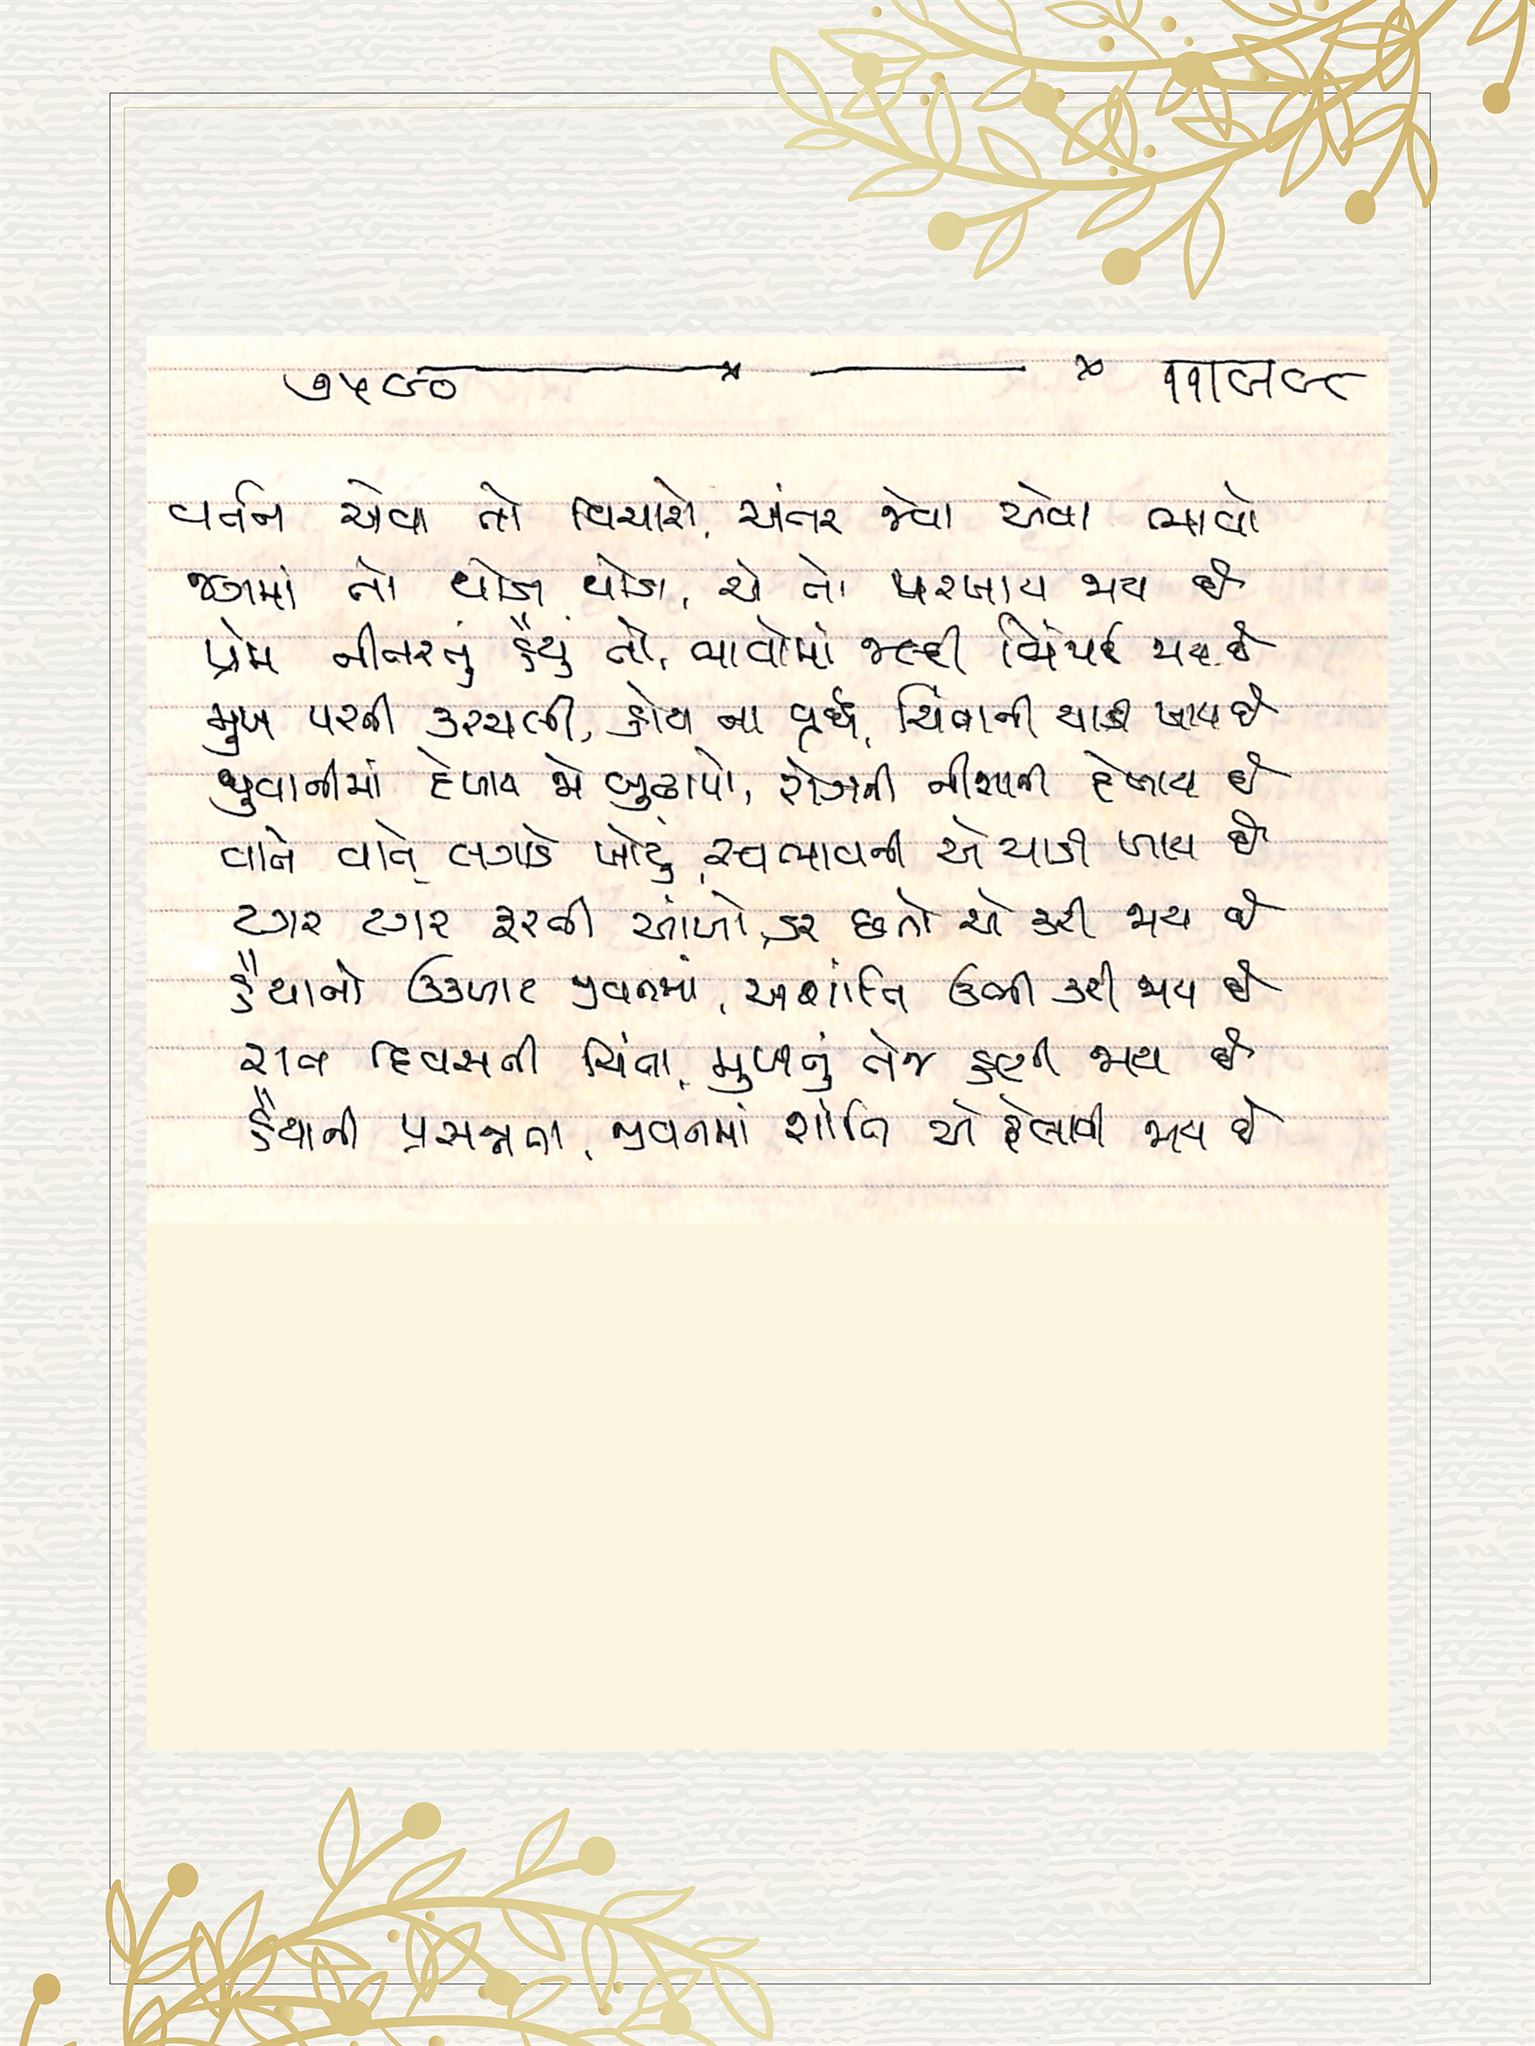 ૭૫૯૦ ૧૧|૯૯૮
વર્તન એવા તો વિચારો, અંતર જેવા એવા ભાવો
જગમાં તો થોજ થોજ, એ તો પરખાય જાય છે
પ્રેમ નીતરતું હૈયું તો, ભાવોમાં જલ્દી ખેંચાઈ જાય છે
મુખ પરની કરચલી, હોય ના વૃદ્ધ, ચિંતાની ચાડી ખાય છે
યુવાનીમાં દેખાય જે બુઢાપો, રોગની નીશાની દેખાય છે
વાતે વાતે લગાડે ખોટું, સ્વભાવની એ ચાડી ખાય છે
ટગર ટગર ફરતી આંખો, ડર છતો એ કરી જાય છે
હૈયાનો ઉકળાટ જીવનમાં, અશાંતિ ઉભી કરી જાય છે
રાત દિવસની ચિંતા, મુખનું તેજ હણી જાય છે
હૈયાની પ્રસન્નતા, જીવનમાં શાંતિ એ ફેલાવી જાય છે